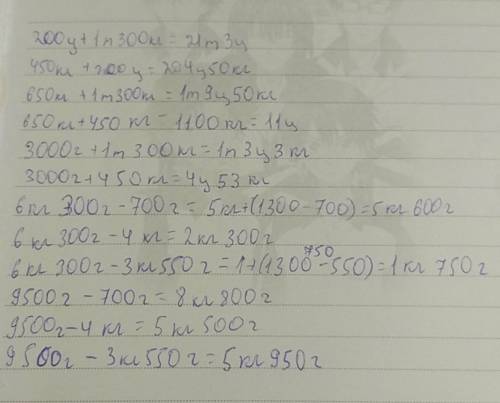 200ц + 1т 300кг = 21т 3ц
450кг + 200ц = 204ц 50кг
650кг + 1т 300кг = 1т 9ц 50кг
650кг + 450 кг = 1100 кг = 11ц
3000г + 1т 300кг = 1т 3ц 3 кг
3000г + 450 кг = 4ц 53 кг
6кг 300г - 700г = 5кг + (1300 - 700) = 5кг 600г
6 кг 300г - 4 кг = 2кг 300г
750
6 кг 300г - 3кг 550г = 1 + (1300 - 550) = 1кг 750г
9500г - 700г = 8кг 800г
9500г - 4 кг = 5 кг 500г
9500г - 3кг 550г = 5кг 950г